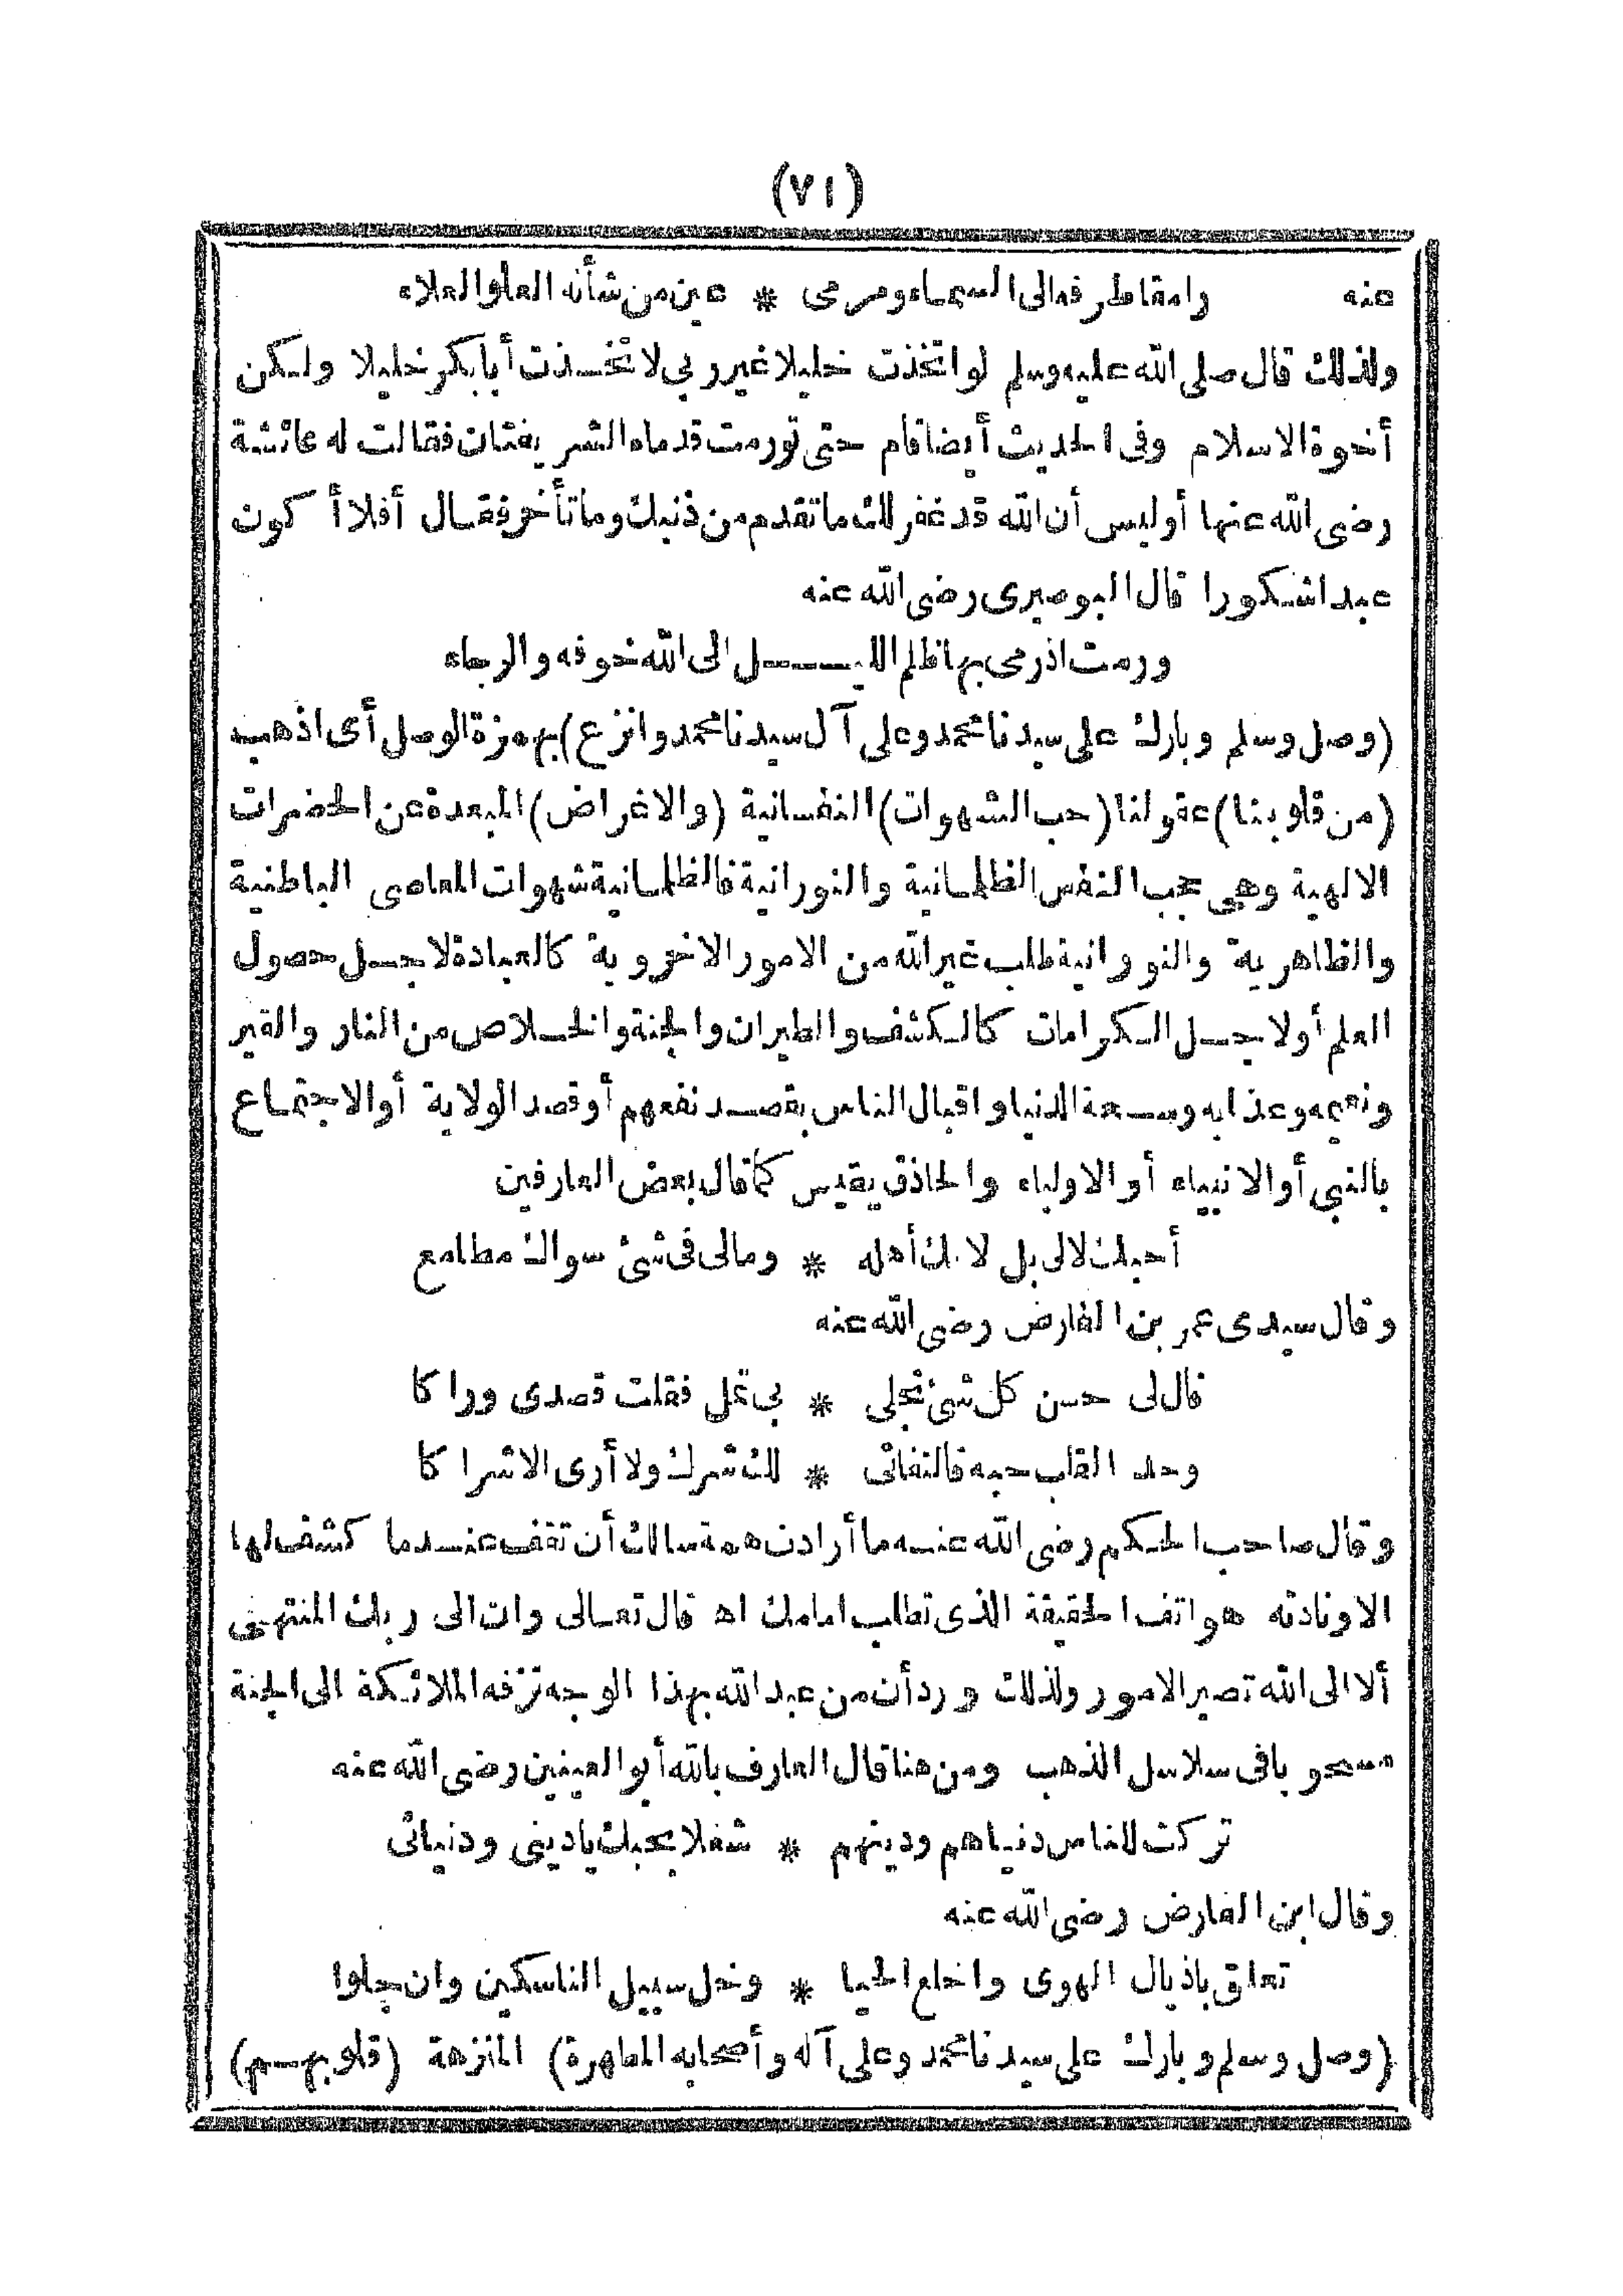 (٧١)
عنه رامقا طرفه الى السماء ومرمى * عين من شأنه العلو العلاء
ولذلك قال صلى الله عليه وسلم لو اتخذت خليلا غير ربى لاتخذت أبا بكر خليلا ولكن
أخوة الاسلام وفى الحديث أيضا قام حتى تورمت قدماه الشريفتان فقالت له عائشة
رضى الله عنها أو ليس أن الله قد غفر لك ما تقدم من ذنبك وما تأخر فقال أفلا أكون
عبدا شكورا قال البوصيرى رضى الله عنه
ورمت اذ رمى بها ظلم الليــل الى الله خوفه والرجاء
(وصل وسلم وبارك على سيدنا محمد وعلى آل سيدنا محمد وانزع) بهمزة الوصل أى اذهب
(من قلوبنا) عقولنا (حب الشهوات) النفسانية (والاغراض) المبعدة عن الحضرات
الالهية وهى حجب النفس الظلمانية والنورانية فالظلمانية شهوات المعاصى الباطنية
والظاهرية والنورانية طلب غير الله من الامور الاخروية كالعبادة لاجل حصول
العلم أو لاجل الكرامات كالكشف والطيران والجنة والخلاص من النار والقبر
ونعيمه وعذابه وسعة الدنيا واقبال الناس بقصد نفعهم أو قصد الولاية أو الاجتماع
بالنبى أو الانبياء أو الاولياء والحاذق يقيس كما قال بعض العارفين
أحبك لا لى بل لانك أهله * ومالى فى شئ سواك مطامع
وقال سيدى عمر بن الفارض رضى الله عنه
قال لى حسن كل شئ تجلى * بى تمل فقلت قصدى وراكا
وحد القلب حبه فالتفاتى * لك شرك ولا أرى الاشراكا
وقال صاحب الحكم رضى الله عنه ما أرادت همة سالك أن تقف عندما كشف لها
الا ونادته هواتف الحقيقة الذى تطلب امامك اه قال تعالى وان الى ربك المنتهى
ألا الى الله تصير الامور ولذلك ورد أن من عبد الله بهذا الوجه تزفه الملائكة الى الجنة
مسحوبا فى سلاسل الذهب ومن هنا قال العارف بالله أبو العينين رضى الله عنه
تركت للناس دنياهم ودينهم * شغلا بحبك يا دينى ودنيائى
وقال ابن الفارض رضى الله عنه
تعلق باذيال الهوى واخلع الحيا * وخل سبيل الناسكين وان جلوا
(وصل وسلم وبارك على سيدنا محمد وعلى آله وأصحابه المطهرة) المنزهة (قلوبهم)